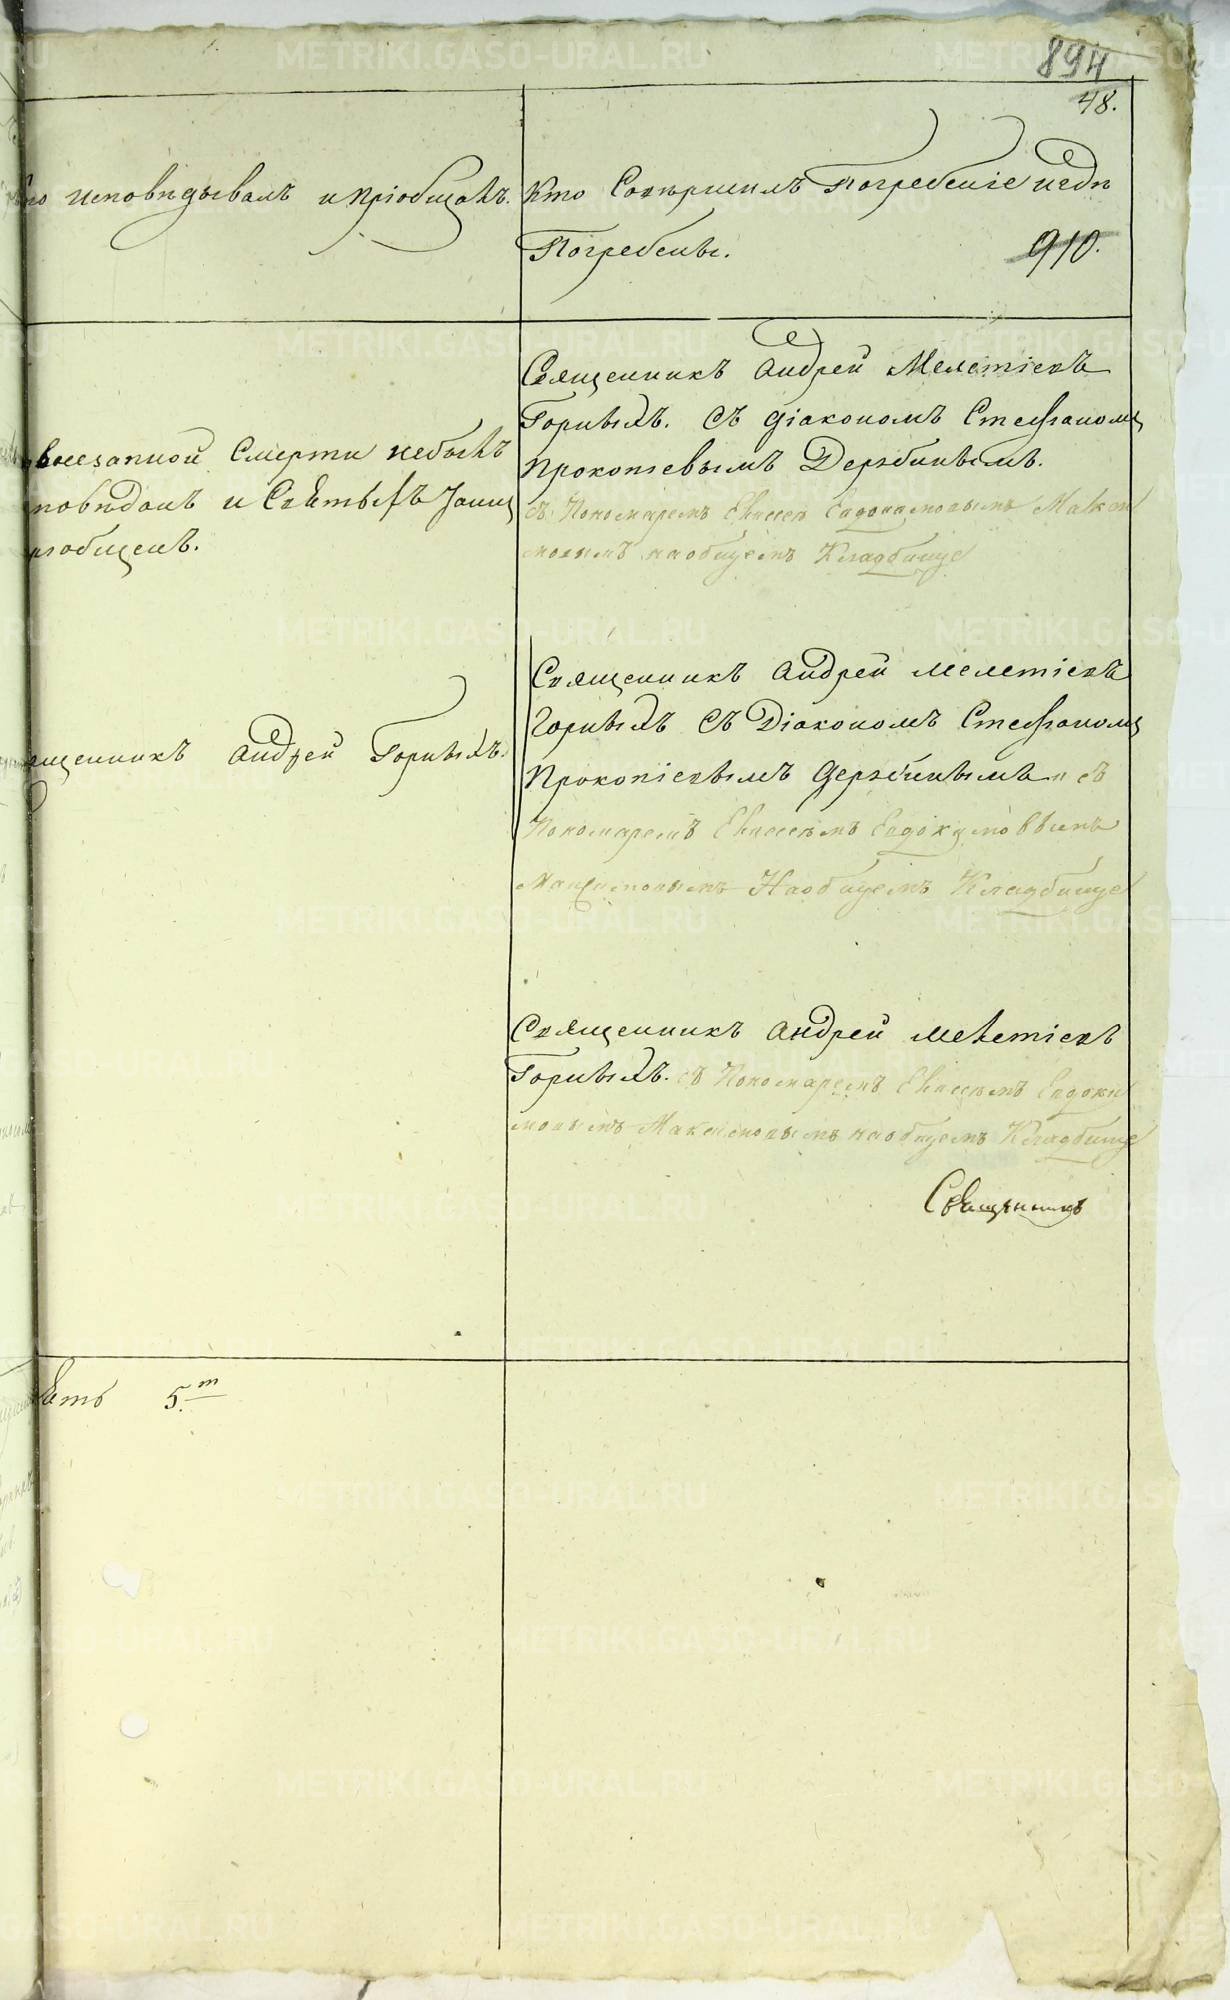 894
48.
исповѣдывалъ и пріобщалъ.
Кто Совершилъ Погребеніе и гдѣ
Погребены.
910.
внезапной Смерти небылъ
исповѣданъ и Святыхъ Таинъ
пріобщенъ.
Священникъ Андрей Мелетіевъ
Горныхъ. Съ діакономъ Стефаномъ
Прокопьевымъ Дерябинымъ.
съ Пономаремъ Елисеемъ Евдокимовымъ Макси
мовымъ на общемъ Кладбище
Священникъ Андрей Горныхъ.
Священникъ Андрей Мелетіевъ
Горныхъ Съ Діакономъ Стефаномъ
Прокопіевымъ Дерябинымъ и съ
Пономаремъ Елисеемъ Евдокимовымъ
Максимовымъ На общемъ Кладбище
Священникъ Андрей Мелетіевъ
Горныхъ. съ Пономаремъ Елисеемъ Евдоки
мовымъ Максимовымъ на общемъ Кладбище
Священникъ
5.т